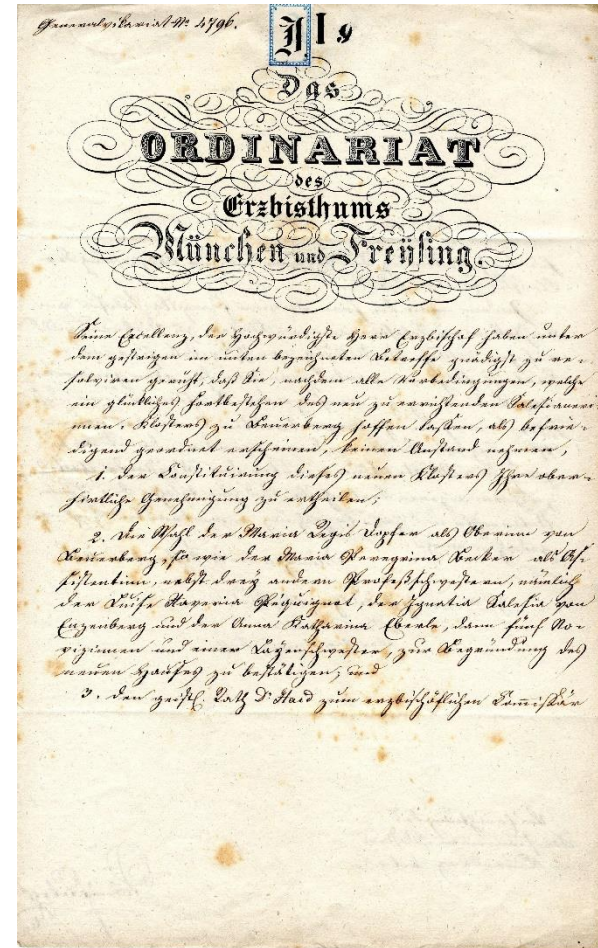 Generalvikariat №. 4796.
I I,
Das
ORDINARIAT
des
Erzbisthums
München und Freÿsing.
Seine Excellenz, der Hochwürdigste Herr Erzbischof haben unter
dem gestrigen im unten bezeichneten Betreffe gnädigst zu re-
solviren geruht, daß Sie, nachdem alle Vorbedingungen, welche
ein glückliches Fortbestehen des neu zu errichtenden Salesianeri-
nnen-Klosters zu Beuerberg hoffen lassen, als befrie-
digend geordnet erscheinen, keinen Anstand nehmen,
1. der Constituirung dieses neuen Klosters Ihre ober-
hirtliche Genehmigung zu ertheilen;
2. die Wahl der Maria Regis Dopfer als Oberinn von
Beuerberg, so wie der Maria Peregrina Becker als As-
sistentinn, nebst dreÿ andern Profeßschwestern, nämlich
der Luise Xaveria Péquignet, der Ignatia Salesia von
Enzenberg und der Anna Katharina Eberle, dann fünf No-
vizinnen und einer Layenschwester, zur Begründung des
neuen Hauses zu bestätigen; und
3. den geistl. Rath Dr. Haid zum erzbischöflichen Commissär